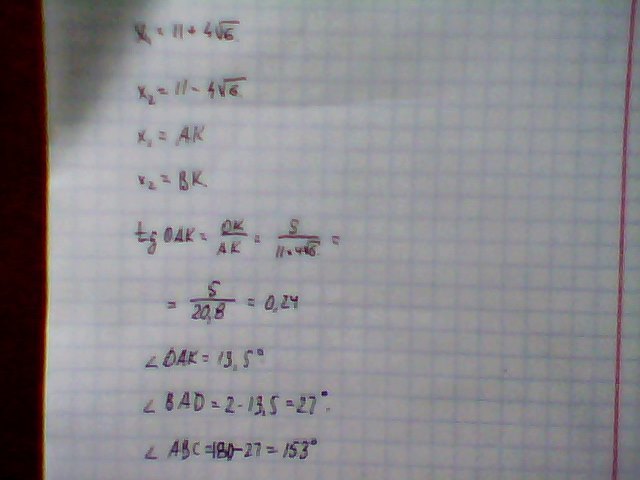 x₁ = 11 + 4√6
x₂ = 11 - 4√6
x₁ = AK
x₂ = BK
tg OAK = OK/AK = 5/(11+4√6) =
= 5/20,8 = 0,24
∠ OAK = 13,5°
∠ BAD = 2 · 13,5 = 27°
∠ ABC = 180 - 27 = 153°